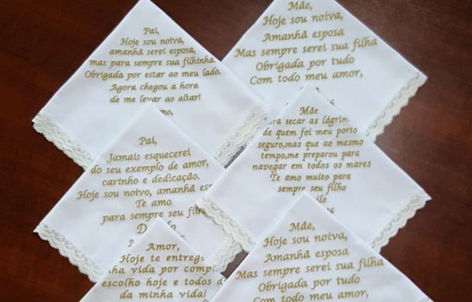 Pai,
Hoje sou noiva,
amanhã serei esposa,
mas para sempre sua filhinha.
Obrigada por estar ao meu lado.
Agora chegou a hora
de me levar ao altar!
Mãe,
Hoje sou noiva,
Amanhã esposa
Mas sempre serei sua filha
Obrigada por tudo
Com todo meu amor,
Pai,
Jamais esquecerei
do seu exemplo de amor,
carinho e dedicação.
Hoje sou noivo, amanhã
Te amo
para sempre seu
Mãe
secar as
de quem foi meu porto
seguro,mas que ao mesmo
tempo,me preparou para
navegar em todos os mares
Te amo muito para
sempre seu filho
Amor,
Hoje te entrego
vida por
escolho hoje e todos
da minha vida!
Mãe,
Hoje sou noiva,
Amanhã esposa
Mas sempre serei sua filha
Obrigada por tudo
Com todo meu amor,